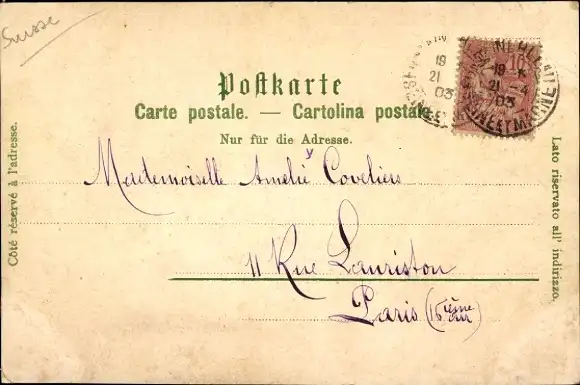 Suisse
Postkarte
Carte postale. — Cartolina postale.
Nur für die Adresse.
Côté réservé à l'adresse.
Lato riservato all' indirizzo.
10
19
21
03
19
21 - 4
03
SEINE ET MARNE
Mademoiselle Amélie Coveliers
11 Rue Lauriston
Paris (16ème arr)